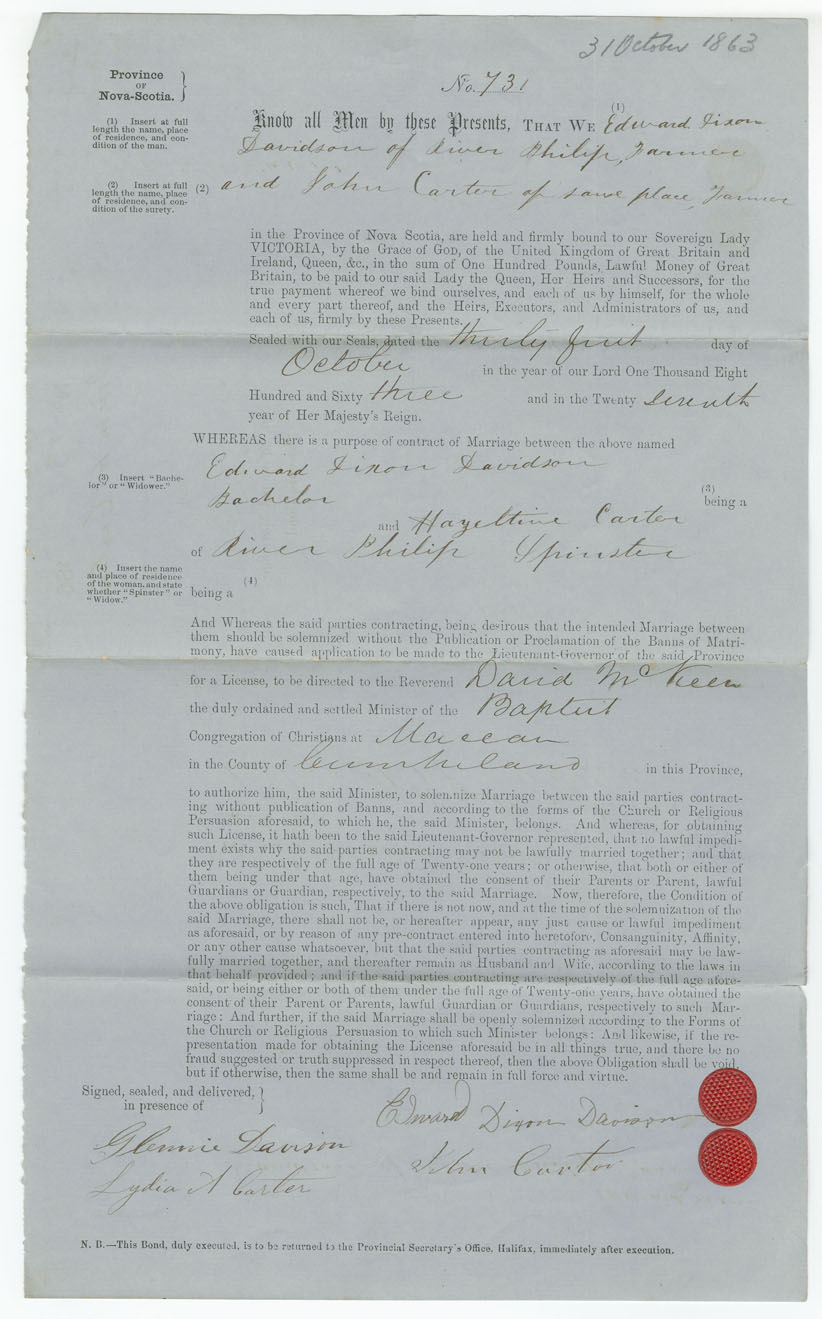 31 October 1863
Province
OF
Nova-Scotia.
No. 731
(1) Insert at full
length the name, place
of residence, and con-
dition of the man.
(1)
Know all Men by these Presents, THAT WE Edward Dixon
Davidson of River Philip, Farmer
(2) Insert at full
length the name, place
of residence, and con-
dition of the surety.
(2) and John Carter of same place, Farmer
in the Province of Nova Scotia, are held and firmly bound to our Sovereign Lady
VICTORIA, by the Grace of GOD, of the United Kingdom of Great Britain and
Ireland, Queen, &c., in the sum of One Hundred Pounds, Lawful Money of Great
Britain, to be paid to our said Lady the Queen, Her Heirs and Successors, for the
true payment whereof we bind ourselves, and each of us by himself, for the whole
and every part thereof, and the Heirs, Executors, and Administrators of us, and
each of us, firmly by these Presents.
Sealed with our Seals, dated the thirty first day of
October in the year of our Lord One Thousand Eight
Hundred and Sixty three and in the Twenty Seventh
year of Her Majesty's Reign.
WHEREAS there is a purpose of contract of Marriage between the above named
Edward Dixon Davidson
(3) Insert "Bache-
lor" or "Widower."
(3)
Bachelor being a
and Hazeltine Carter
of River Philip Spinster
(4) Insert the name
and place of residence
of the woman, and state
whether "Spinster" or
"Widow."
(4)
being a
And Whereas the said parties contracting, being desirous that the intended Marriage between
them should be solemnized without the Publication or Proclamation of the Banns of Matri-
mony, have caused application to be made to the Lieutenant-Governor of the said Province
for a License, to be directed to the Reverend David McKeen
the duly ordained and settled Minister of the Baptist
Congregation of Christians at Maccan
in the County of Cumberland in this Province,
to authorize him, the said Minister, to solemnize Marriage between the said parties contract-
ing without publication of Banns, and according to the forms of the Church or Religious
Persuasion aforesaid, to which he, the said Minister, belongs. And whereas, for obtaining
such License, it hath been to the said Lieutenant-Governor represented, that no lawful impedi-
ment exists why the said parties contracting may not be lawfully married together; and that
they are respectively of the full age of Twenty-one years; or otherwise, that both or either of
them being under that age, have obtained the consent of their Parents or Parent, lawful
Guardians or Guardian, respectively, to the said Marriage. Now, therefore, the Condition of
the above obligation is such, That if there is not now, and at the time of the solemnization of the
said Marriage, there shall not be, or hereafter appear, any just cause or lawful impediment
as aforesaid, or by reason of any pre-contract entered into heretofore, Consanguinity, Affinity,
or any other cause whatsoever, but that the said parties contracting as aforesaid may be law-
fully married together, and thereafter remain as Husband and Wife, according to the laws in
that behalf provided; and if the said parties contracting are respectively of the full age afore-
said, or being either or both of them under the full age of Twenty-one years, have obtained the
consent of their Parent or Parents, lawful Guardian or Guardians, respectively to such Mar-
riage: And further, if the said Marriage shall be openly solemnized according to the Forms of
the Church or Religious Persuasion to which such Minister belongs: And likewise, if the re-
presentation made for obtaining the License aforesaid be in all things true, and there be no
fraud suggested or truth suppressed in respect thereof, then the above Obligation shall be void,
but if otherwise, then the same shall be and remain in full force and virtue.
Signed, sealed, and delivered,
in presence of
Edward Dixon Davison
Glennie Davison
John Carter
Lydia A Carter
N. B.—This Bond, duly executed, is to be returned to the Provincial Secretary's Office, Halifax, immediately after execution.